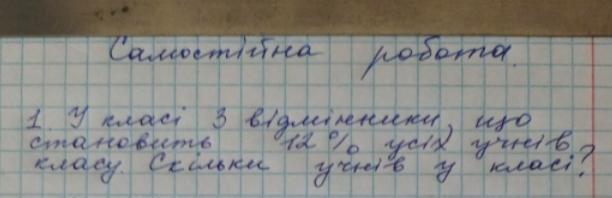 Самостійна робота.
1. У класі 3 відмінники, що
становить 12% усіх учнів
класу. Скільки учнів у класі?